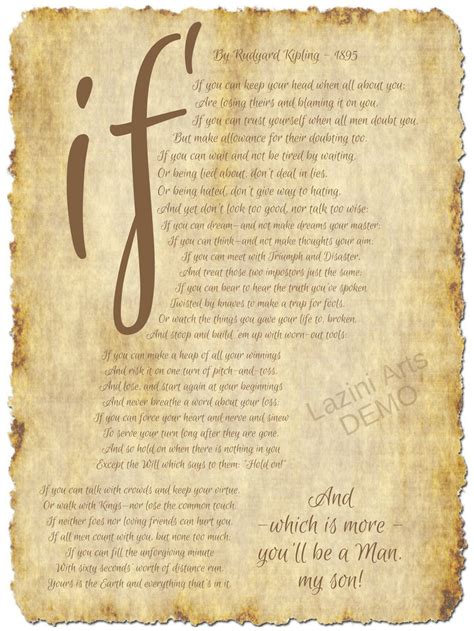 if
By Rudyard Kipling - 1895
If you can keep your head when all about you;
Are losing theirs and blaming it on you.
If you can trust yourself when all men doubt you,
But make allowance for their doubting too.
If you can wait and not be tired by waiting,
Or being lied about, don't deal in lies,
Or being hated, don't give way to hating,
And yet don't look too good, nor talk too wise;
If you can dream—and not make dreams your master;
If you can think—and not make thoughts your aim;
If you can meet with Triumph and Disaster,
And treat those two impostors just the same;
If you can bear to hear the truth you've spoken,
Twisted by knaves to make a trap for fools,
Or watch the things you gave your life to, broken,
And stoop and build 'em up with worn-out tools;
If you can make a heap of all your winnings
And risk it on one turn of pitch-and-toss,
And lose, and start again at your beginnings
And never breathe a word about your loss;
If you can force your heart and nerve and sinew
To serve your turn long after they are gone,
And so hold on when there is nothing in you
Except the Will which says to them: "Hold on!"
If you can talk with crowds and keep your virtue,
Or walk with Kings—nor lose the common touch,
If neither foes nor loving friends can hurt you,
If all men count with you, but none too much;
If you can fill the unforgiving minute
With sixty seconds' worth of distance run,
Yours is the Earth and everything that's in it,
And
–which is more –
you'll be a Man,
my son!
Lazini Arts
DEMO